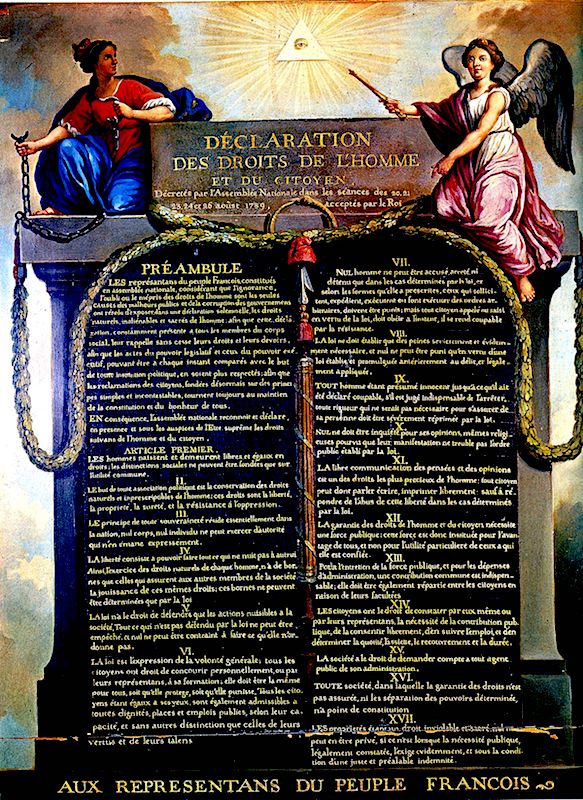 DÉCLARATION
DES DROITS DE L'HOMME
ET DU CITOYEN
Décretés par l'Assemblée Nationale dans les séances des 20. 21
23. 24 et 26 août 1789, acceptés par le Roi
PRÉAMBULE
LES représantans du peuple François, constitués
en assemblée nationale, considérant que l'ignorance,
l'oubli ou le mépris des droits de l'homme sont les seules
causes des malheurs publics et de la corruption des gouvernemens
ont résolu d'exposer, dans une déclaration solemnelle, les droits
naturels, inaliénables et sacrés de l'homme; afin que cette décla-
ration, constamment présente a tous les membres du corps
social, leur rappelle sans cesse leurs droits et leurs devoirs,
afin que les actes du pouvoir legislatif et ceux du pouvoir exé-
cutif, pouvant être a chaque instant comparés avec le but
de toute institution politique, en soient plus respectés; afin que
les reclamations des citoyens, fondées désormais sur des princi-
pes simples et incontestables, tournent toujours au maintien
de la constitution et du bonheur de tous.
EN conséquence, l'assemblée nationale reconnoit et déclare,
en presence et sous les auspices de l'Etre suprême les droits
suivans de l'homme et du citoyen.
ARTICLE PREMIER.
LES hommes naissent et demeurent libres et égaux en
droits; les distinctions sociales ne peuvent être fondées que sur
l'utilité commune.
II.
LE but de toute association politique est la conservation des droits
naturels et inprescriptibles de l'homme; ces droits sont la liberté,
la propriété, la sureté, et la résistance à l'oppression.
III.
LE principe de toute souveraineté réside essentiellement dans
la nation, nul corps, nul individu ne peut exercer d'autorité
qui n'en émane expressement.
IV.
LA liberté consiste a pouvoir faire tout ce qui ne nuit pas à autrui
Ainsi, l'exercice des droits naturels de chaque homme, n'a de bor-
nes que celles qui assurent aux autres membres de la société
la jouissance de ces mêmes droits; ces bornes ne peuvent
être déterminées que par la loi
V.
LA loi n'a le droit de défendre que les actions nuisibles a la
société. Tout ce qui n'est pas défendu par la loi ne peut être
empêché, et nul ne peut être contraint à faire ce qu'elle n'or-
donne pas.
VI.
LA loi est l'expression de la volonté générale; tous les
citoyens ont droit de concourir personnellement, ou par
leurs représentans, à sa formation; elle doit être la même
pour tous, soit qu'elle protege, soit qu'elle punisse. Tous les cito-
yens étant égaux a ses yeux, sont également admissibles a
toutes dignités, places et emplois publics, selon leur ca-
pacité, et sans autres distinction que celles de leurs
vertus et de leurs talens.
VII.
NUL homme ne peut être accusé, arreté ni
détenu que dans les cas déterminés par la loi, et
selon les formes qu'elle a prescrites, ceux qui sollici-
tent, expédient, exécutent ou font exécuter des ordres ar-
bitraires, doivent être punis; mais tout citoyen appelé ou saisi
en vertu de la loi, doit obéir a l'instant, il se rend coupable
par la résistance.
VIII.
LA loi ne doit établir que des peines strictement et évidem-
ment nécessaire, et nul ne peut être puni qu'en vertu d'une
loi établie et promulguée antérierement au délit, et légale-
ment appliquée.
IX.
TOUT homme étant présumé innocent jusqu'a ce qu'il ait
été déclaré coupable, s'il est jugé indispensable de l'arrêter,
toute rigueur qui ne serait pas nécessaire pour s'assurer de
sa personne doit être sévèrement réprimée par la loi.
X.
NUL ne doit être inquiété pour ses opinions, mêmes religi-
euses pourvu que leur manifestation ne trouble pas l'ordre
public établi par la loi.
XI.
LA libre communication des pensées et des opinions
est un des droits les plus precieux de l'homme; tout citoyen
peut donc parler écrire, imprimer librement: sauf à ré-
pondre de l'abus de cette liberté dans les cas déterminés
par la loi.
XII.
LA garantie des droits de l'homme et du citoyen nécessite
une force publique; cette force est donc instituée pour l'avan-
tage de tous, et non pour l'utilité particuliere de ceux a qui
elle est confiée.
XIII.
Pour l'entretien de la force publique, et pour les dépenses
d'administration, une contribution commune est indispen-
sable; elle doit être également répartie entre les citoyens en
raison de leurs facultées.
XIV.
LES citoyens ont le droit de constater par eux même ou
par leurs représentans, la nécessité de la contribution pub-
lique, de la consentir librement, d'en suivre l'emploi, et d'en
déterminer la quotité, l'assiette, le recouvrement et la durée.
XV.
LA société a le droit de demander compte a tout agent
public de son administration.
XVI.
TOUTE société, dans laquelle la garantie des droits n'est
pas assurée, ni la séparation des pouvoirs déterminée,
n'a point de constitution.
XVII.
LES propriétés étant un droit inviolable et sacré, nul ne
peut en être privé, si ce n'est lorsque la nécessité publique,
légalement constatée, l'exige evidemment, et sous la condi-
tion d'une juste et préalable indemnité.
AUX REPRESENTANS DU PEUPLE FRANCOIS